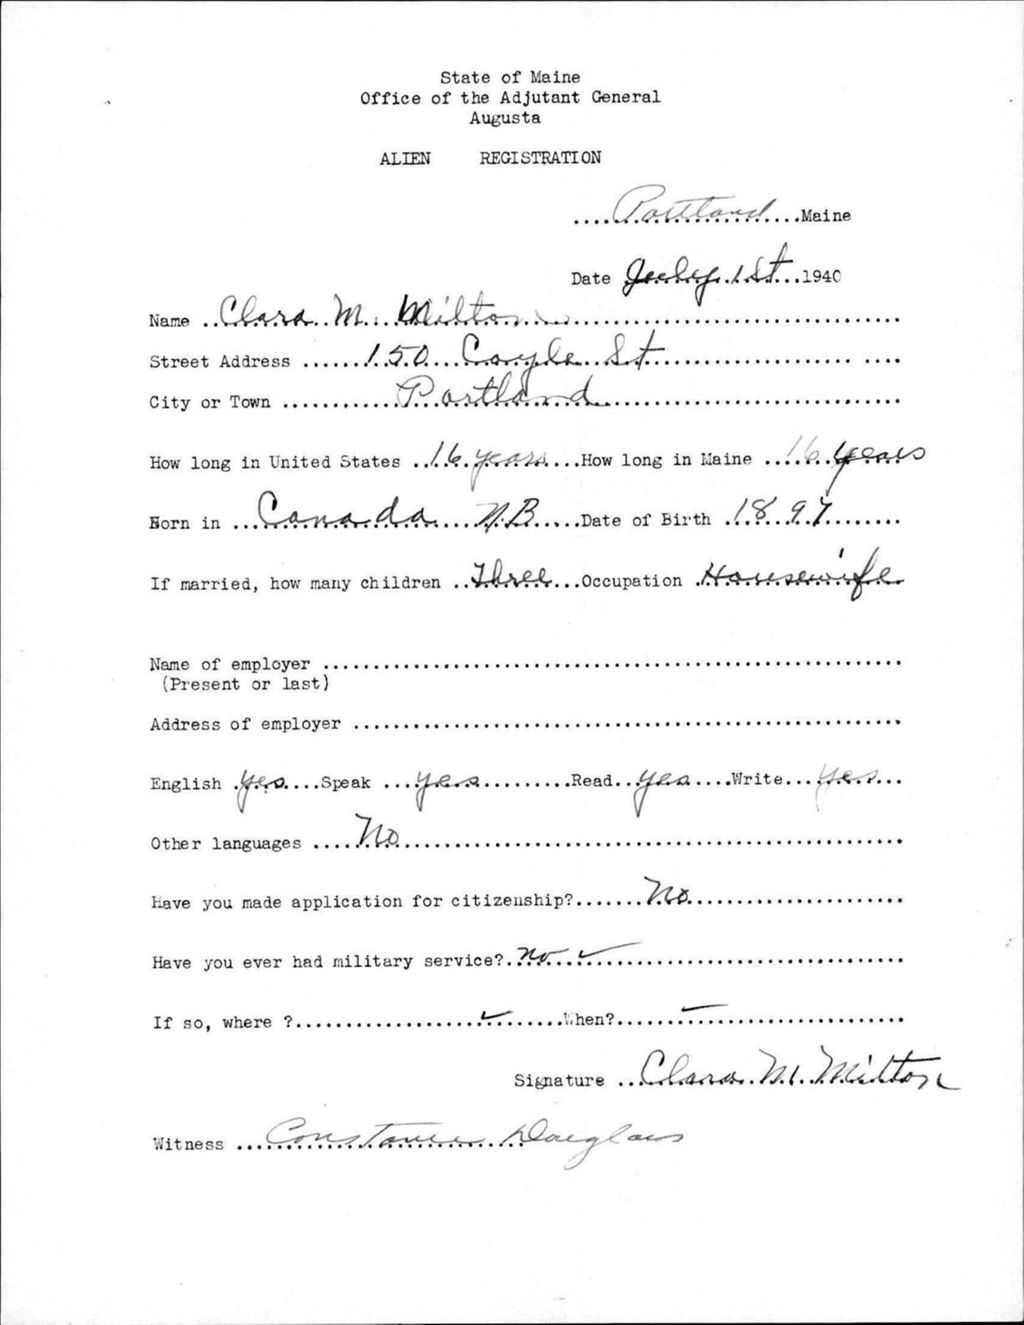 State of Maine
Office of the Adjutant General
Augusta
ALIEN REGISTRATION
....Portland....Maine
Date July 1st...1940
Name ..Clara M. Milton..............................
Street Address .......150 Coyle St..............................
City or Town ............Portland..............................
How long in United States ..16 years...How long in Maine ....16 years
Born in ...Canada....N.B.....Date of Birth .1897........
If married, how many children ..Three...Occupation .Housewife
Name of employer ..............................
(Present or last)
Address of employer ..............................
English .yes....Speak ...yes..........Read..yes....Write...yes...
Other languages ....No..............................
Have you made application for citizenship?.......No......................
Have you ever had military service?.no...✓..............................
If so, where ?..................✓.......When?......✓....................
Signature ..Clara M. Milton
Witness ...Constance Douglass